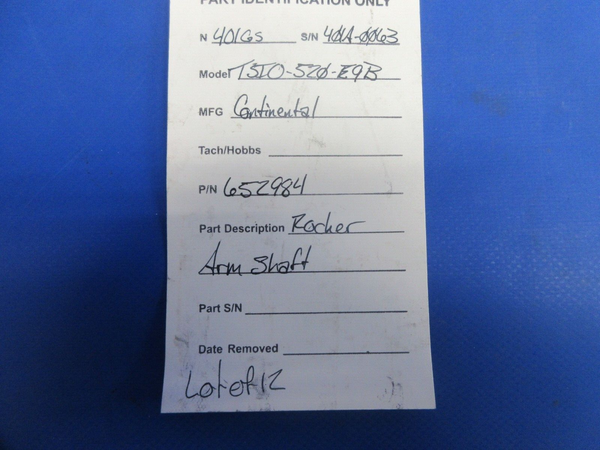 PART IDENTIFICATION ONLY
N 401GS S/N 401A-0063
Model TSIO-520-E9B
MFG Continental
Tach/Hobbs
P/N 652984
Part Description Rocker
Arm Shaft
Part S/N
Date Removed
Lot of 12